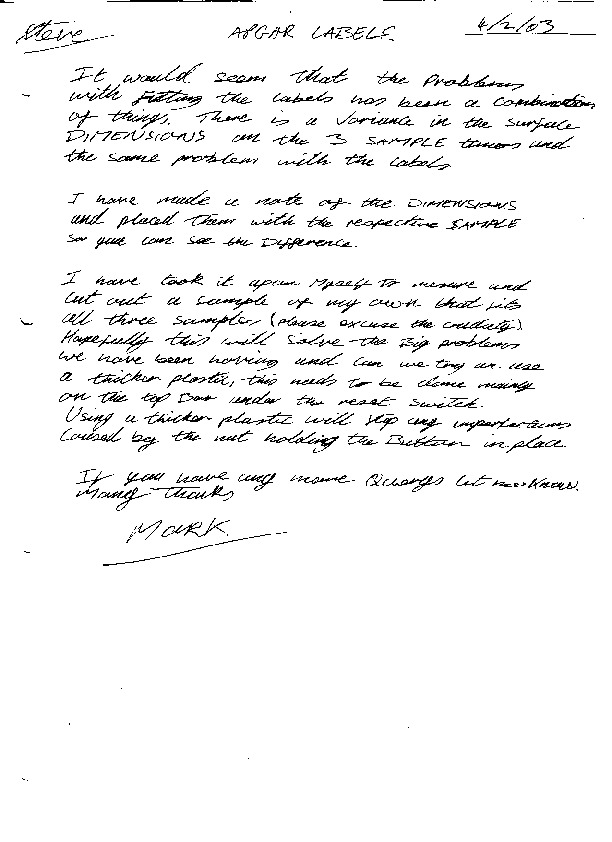 Steve
APGAR LABELS
4/2/03
It would seem that the Problems
with fitting the labels has been a combination
of things. There is a variance in the surface
DIMENSIONS on the 3 SAMPLE and
the same problem with the labels
I have made a note of the DIMENSIONS
and placed them with the respective SAMPLE
so you can see the Difference.
I have took it upon Myself to measure and
cut out a sample of my own that fits
all three samples (please excuse the crudity)
Hopefully this will solve the Big problems
we have been having and can we try an use
a thicker plastic, this needs to be done mainly
on the top Bar under the reset switch.
Using a thicker plastic will stop any imperfections
caused by the nut holding the Button in place
If you have any more Quarrys let me know.
Many Thanks
MARK